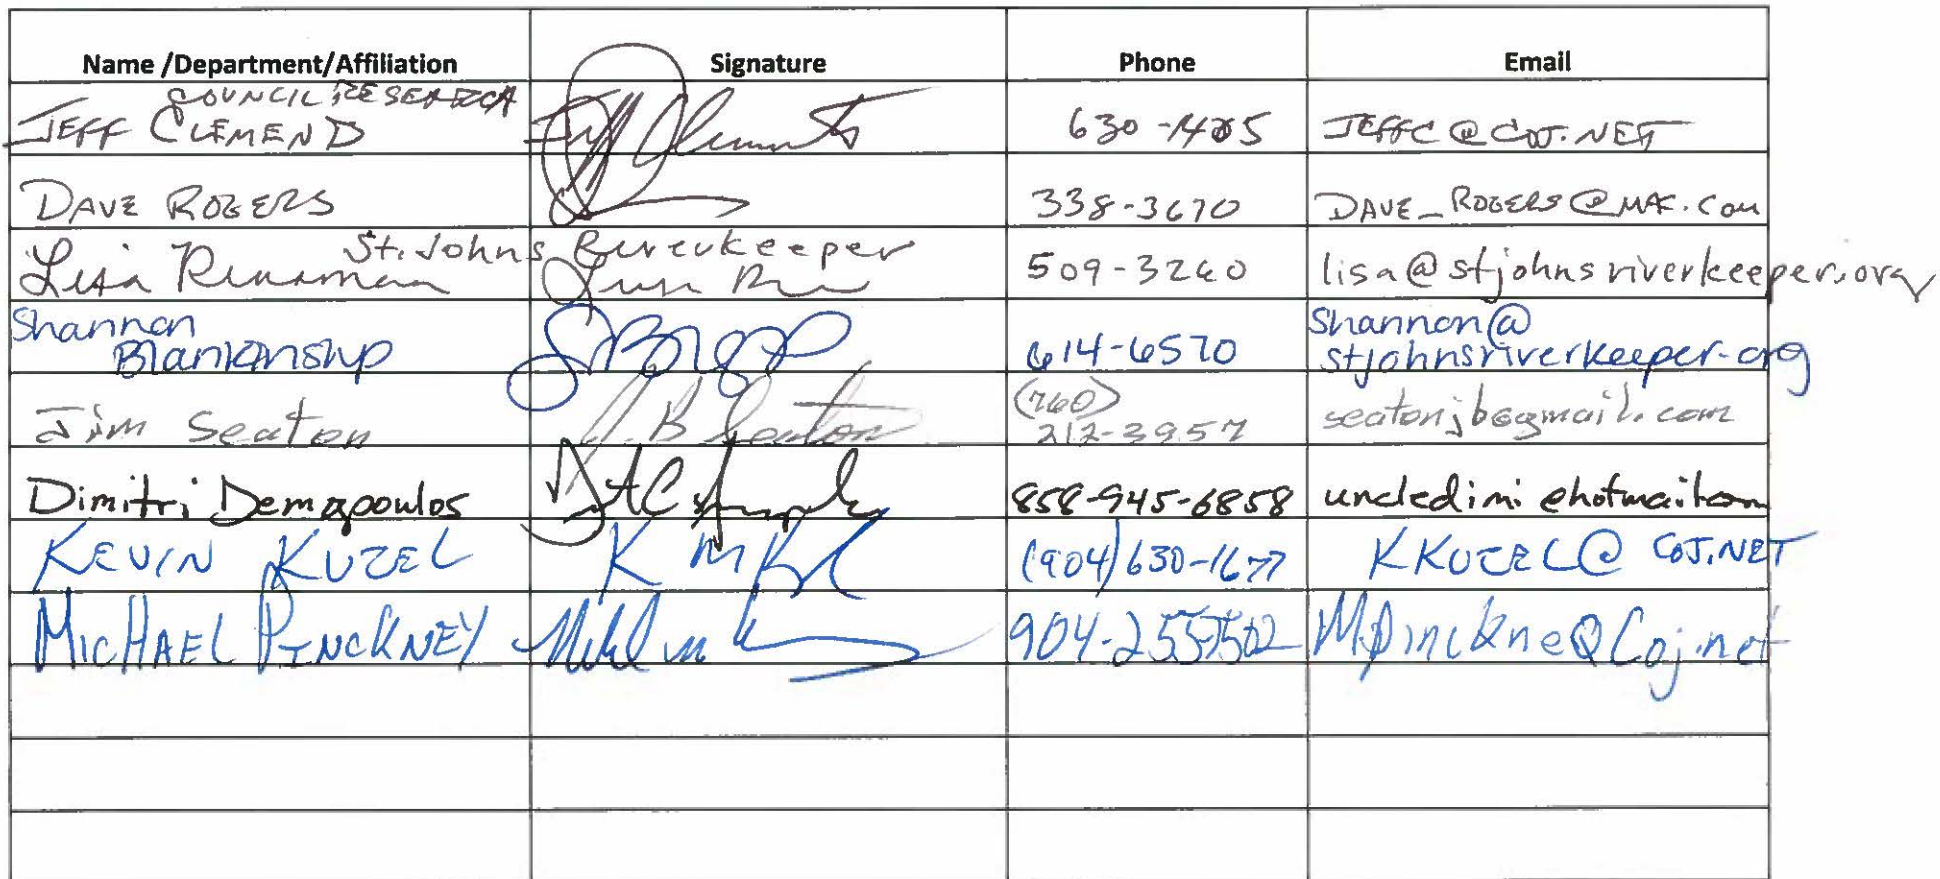 Name /Department/Affiliation Signature Phone Email
COUNCIL RESEARCH
JEFF CLEMENTS Jeff Clements 630-1405 JEFFC@COJ.NET
DAVE ROGERS 338-3670 DAVE_ROGERS@MAC.COM
St. Johns Riverkeeper
Lisa Rinaman 509-3260 lisa@stjohnsriverkeeper.org
Shannon Shannon@
Blankinship 614-6570 stjohnsriverkeeper.org
(760)
Jim Seaton J. B Seaton 212-3957 seatonjb@gmail.com
Dimitri Demopoulos 858-945-6858 uncledimi@hotmail.com
KEVIN KUZEL (904)630-1677 KKUZEL@COJ.NET
MICHAEL PINCKNEY 904-255-7502 MPinckne@Coj.net